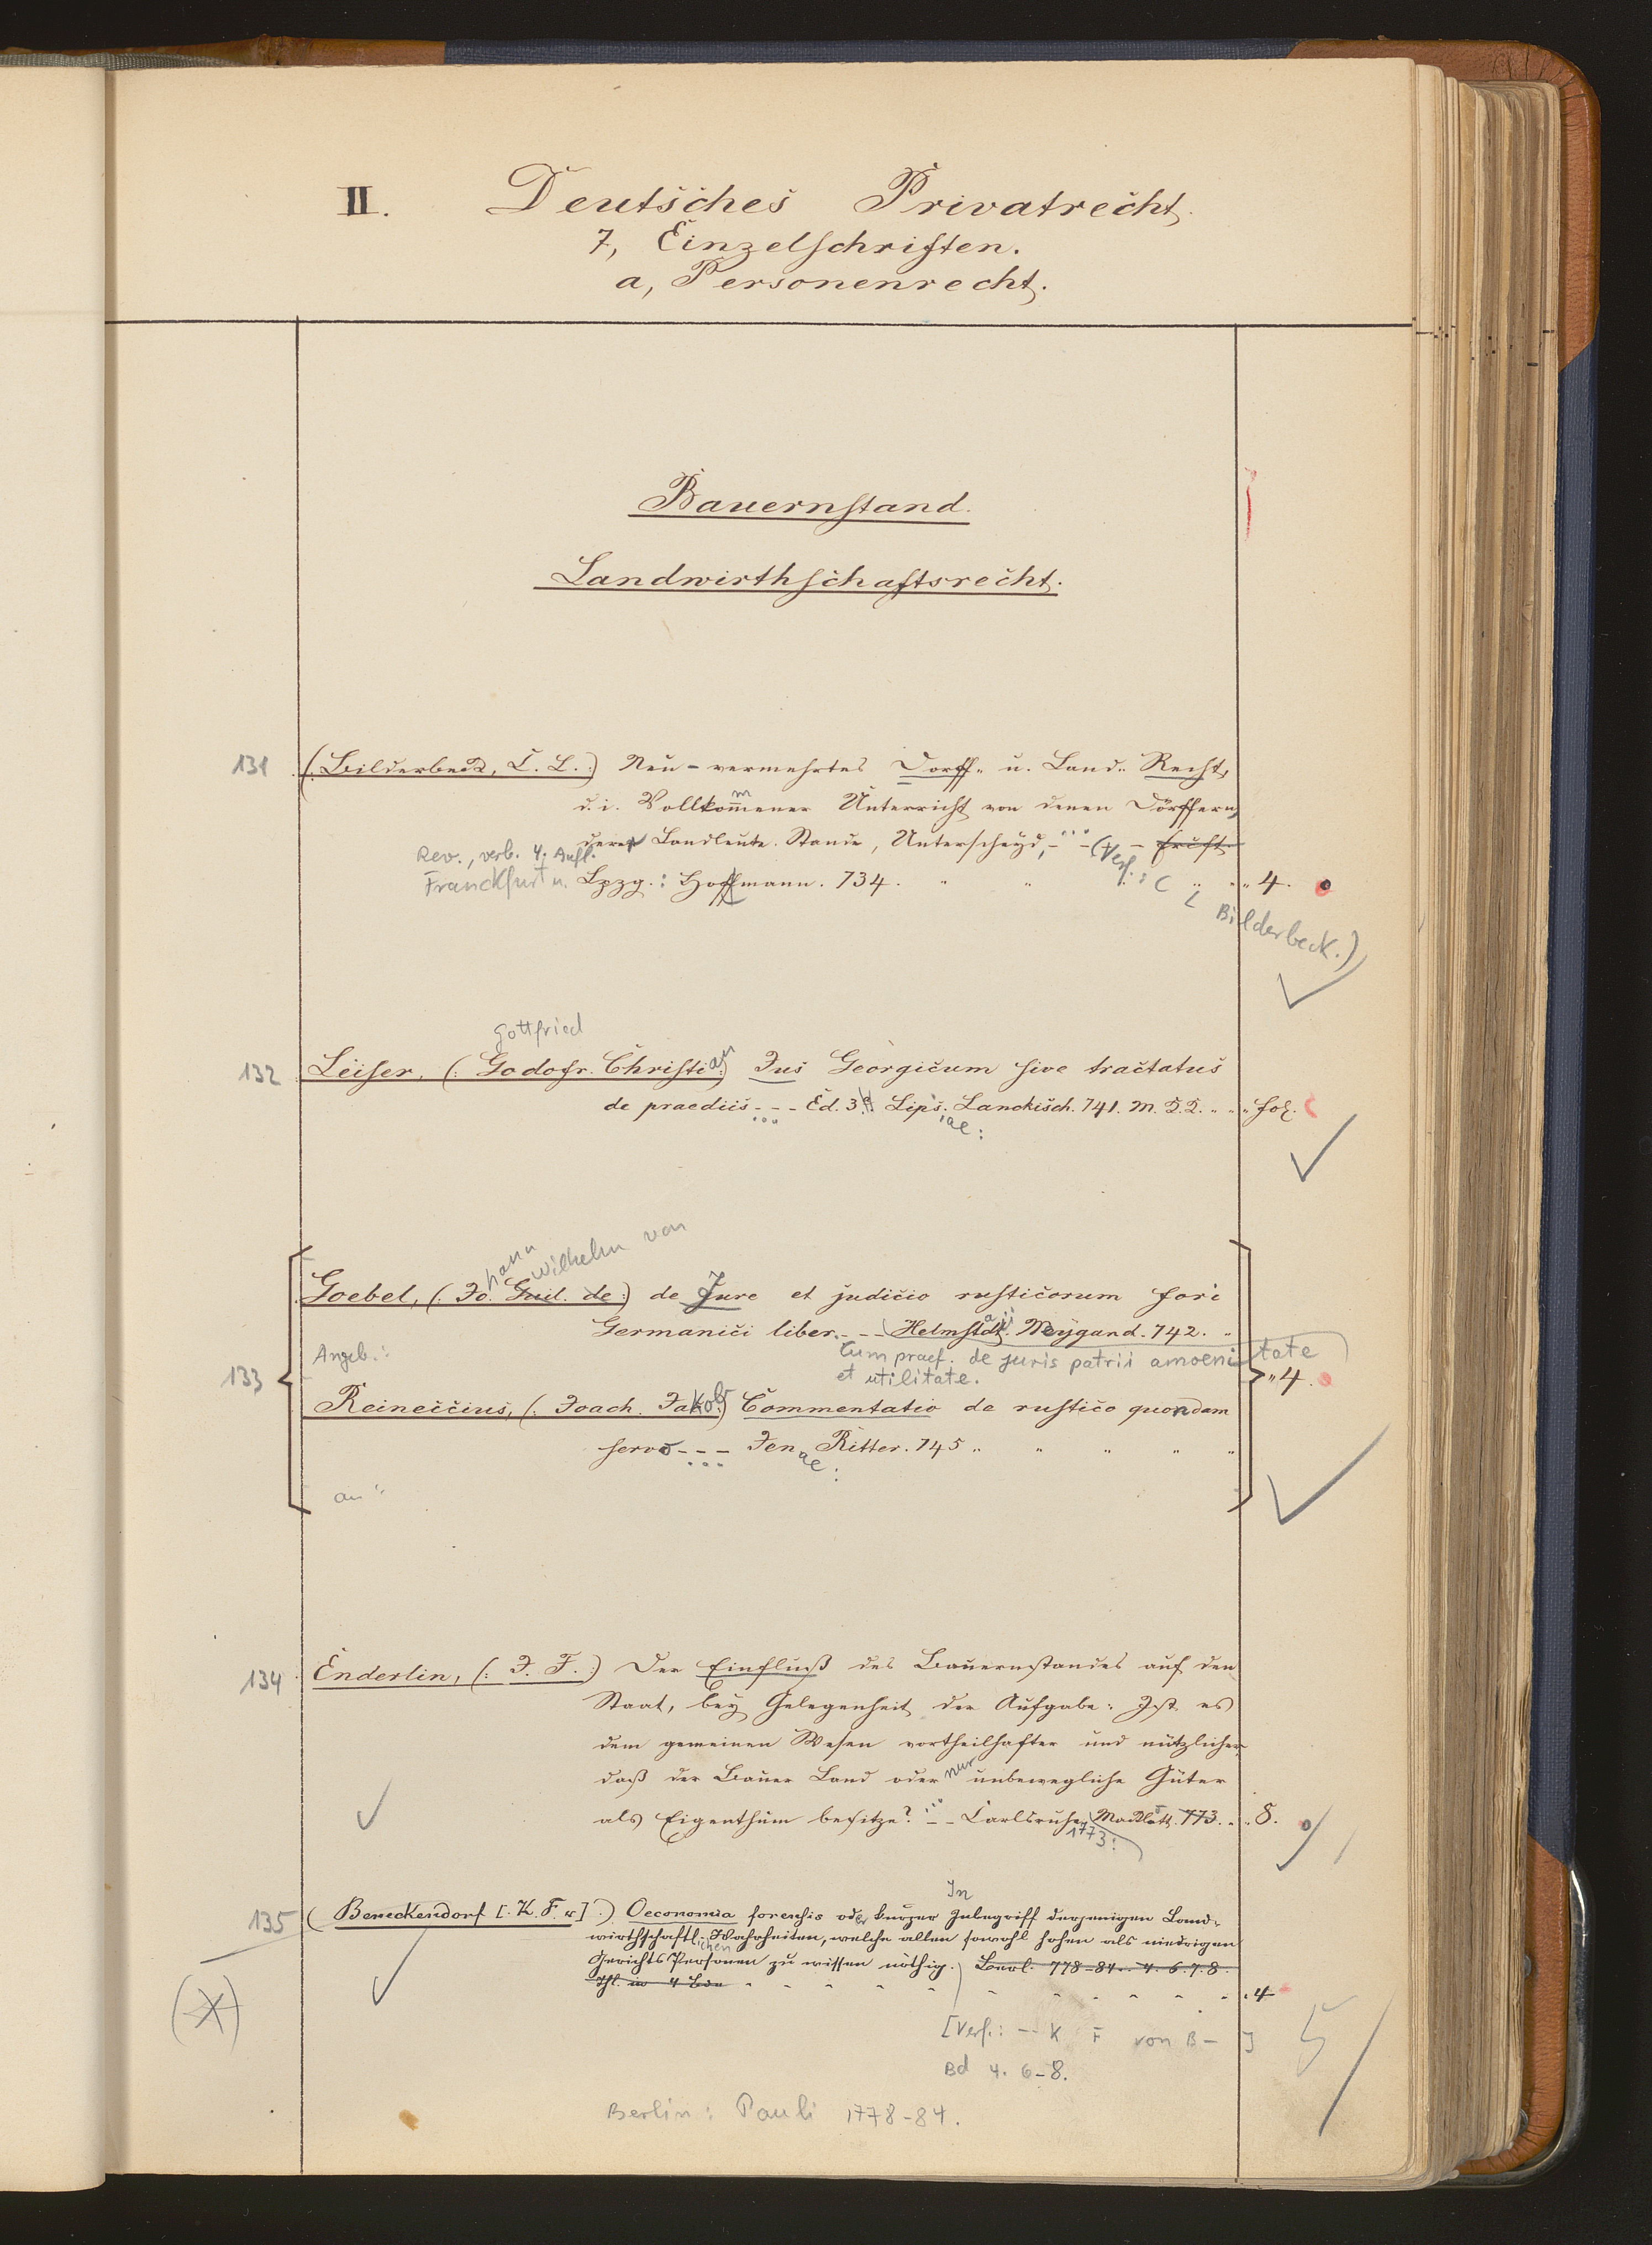 II. Deutsches Privatrecht.
7, Einzelschriften.
a, Personenrecht.
Bauernstand.
Landwirthschaftsrecht.
131 (: Bilderbeck, C. L. :) Neu-vermehrtes Dorff- u. Land-Recht,
d. i. Vollkommener Unterricht von denen Dörffern,
derer Landleute Stande, Unterscheyd, - - -
Rev., verb. 4. Aufl.
Franckfurt u. Lpzg.: Hoffmann. 734. " " " " 4.
(Verf.: C L Bilderbeck.)
Gottfried
132 Leiser, (: Godofr. Christian :) Jus Georgicum sive tractatus
de praediis - - - Ed. 3. Lipsiae: Lanckisch. 741. " " fol.
hann Wilhelm von
Goebel, (: Jo. Guil. de :) de Jure et judicio rusticorum fori
Germanici liber. - - - Helmstadii. Weygand. 742. "
Angeb.: Cum praef. de juris patrii amoenitate
et utilitate.
133 " 4.
Reineccius, (: Joach. Jakob :) Commentatio de rustico quondam
servo - - - Jenae: Ritter. 745 " " " " "
an "
134 Enderlin, (: J. F. :) Der Einfluß des Bauernstandes auf den
Staat, bey Gelegenheit der Aufgabe: Ist es
dem gemeinen Wesen vortheilhafter und nützlicher,
daß der Bauer Land oder nur unbewegliche Güter
als Eigenthum besitze? - - - Carlsruhe, Macklott. 773. " " 8.
1773:
In
135 ( Beneckendorf [. K. F. v] .) Oeconomia forensis oder kurzer Inbegriff derjenigen Land-
wirthschaftlichen Wahrheiten, welche allen sowohl hohen als niedrigen
Gerichts Personen zu wissen nöthig. Berl. 778-84. 4. 6. 7. 8.
Thl. in 4 Bde " " " " " " " " " " 4
[Verf.: - K F von B - ] 5
Bd 4. 6-8.
Berlin: Pauli 1778-84.